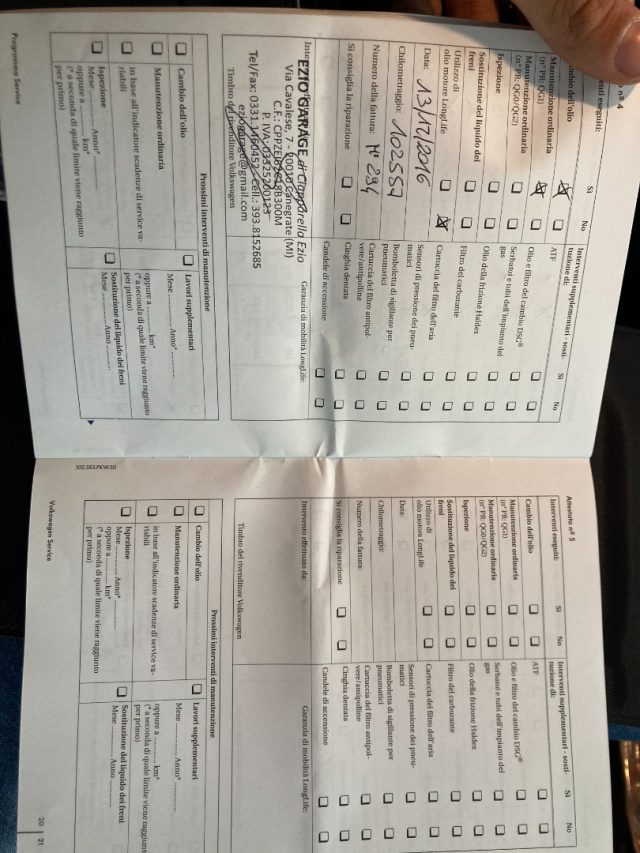 n° 4
eseguiti:
Sì
No
Cambio dell'olio
Manutenzione ordinaria
(n° PR: QG1)
Manutenzione ordinaria
(n° PR: QG0/QG2)
Ispezione
Sostituzione del liquido dei
freni
Utilizzo di
olio motore LongLife
Data: 13/12/2016
Chilometraggio: 102557
Numero della fattura: N° 294
Si consiglia la riparazione
Interventi supplementari - sosti-
tuzione di:
Sì
No
ATF
Olio e filtro del cambio DSG®
Serbatoi e tubi dell'impianto del
gas
Olio della frizione Haldex
Filtro del carburante
Cartuccia del filtro dell'aria
Sensori di pressione dei pneu-
matici
Bomboletta di sigillante per
pneumatici
Cartuccia del filtro antipol-
vere/antipolline
Cinghia dentata
Candele di accensione
Garanzia di mobilità LongLife:
EZIO GARAGE di Ciapparella Ezio
Via Cavalese, 7 - 20010 Canegrate (MI)
Tel/Fax: 0331.1460452 - Cell.: 393.8152685
@gmail.com
Timbro del rivenditore Volkswagen
Prossimi interventi di manutenzione
Cambio dell'olio
Manutenzione ordinaria
in base all'indicatore scadenze di service va-
riabili
Ispezione
Mese ............ Anno* ............
oppure a ............ km*
(* a seconda di quale limite viene raggiunto
per primo)
Lavori supplementari
Mese ............ Anno* ............
oppure a ............ km*
(* a seconda di quale limite viene raggiunto
per primo)
Sostituzione del liquido dei freni
Mese ............ Anno ............
Programma Service
502.5R3.PKW.50
Attestato n° 5
Interventi eseguiti:
Sì
No
Cambio dell'olio
Manutenzione ordinaria
(n° PR: QG1)
Manutenzione ordinaria
(n° PR: QG0/QG2)
Ispezione
Sostituzione del liquido dei
freni
Utilizzo di
olio motore LongLife
Data:
Chilometraggio:
Numero della fattura:
Si consiglia la riparazione
Intervento effettuato da:
Timbro del rivenditore Volkswagen
Interventi supplementari - sosti-
tuzione di:
Sì
No
ATF
Olio e filtro del cambio DSG®
Serbatoi e tubi dell'impianto del
gas
Olio della frizione Haldex
Filtro del carburante
Cartuccia del filtro dell'aria
Sensori di pressione dei pneu-
matici
Bomboletta di sigillante per
pneumatici
Cartuccia del filtro antipol-
vere/antipolline
Cinghia dentata
Candele di accensione
Garanzia di mobilità LongLife:
Prossimi interventi di manutenzione
Cambio dell'olio
Manutenzione ordinaria
in base all'indicatore scadenze di service va-
riabili
Ispezione
Mese ............ Anno* ............
oppure a ............ km*
(* a seconda di quale limite viene raggiunto
per primo)
Lavori supplementari
Mese ............ Anno* ............
oppure a ............ km*
(* a seconda di quale limite viene raggiunto
per primo)
Sostituzione del liquido dei freni
Mese ............ Anno ............
Volkswagen Service
20 | 21